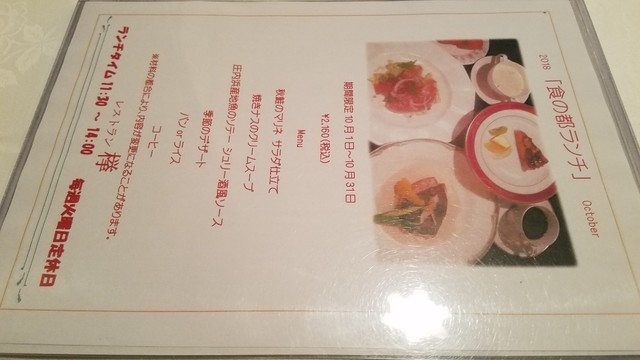 2018 「食の都ランチ」 October
期間限定 10月1日～10月31日
¥2,160(税込)
Menu
秋鮭のマリネ サラダ仕立て
焼きナスのクリームスープ
庄内浜産地魚のソテー シェリー酒風ソース
季節のデザート
パン or ライス
コーヒー
※材料の都合により、内容が変更になることがあります。
レストラン 欅
ランチタイム 11:30 ～ 14:00
毎週火曜日定休日